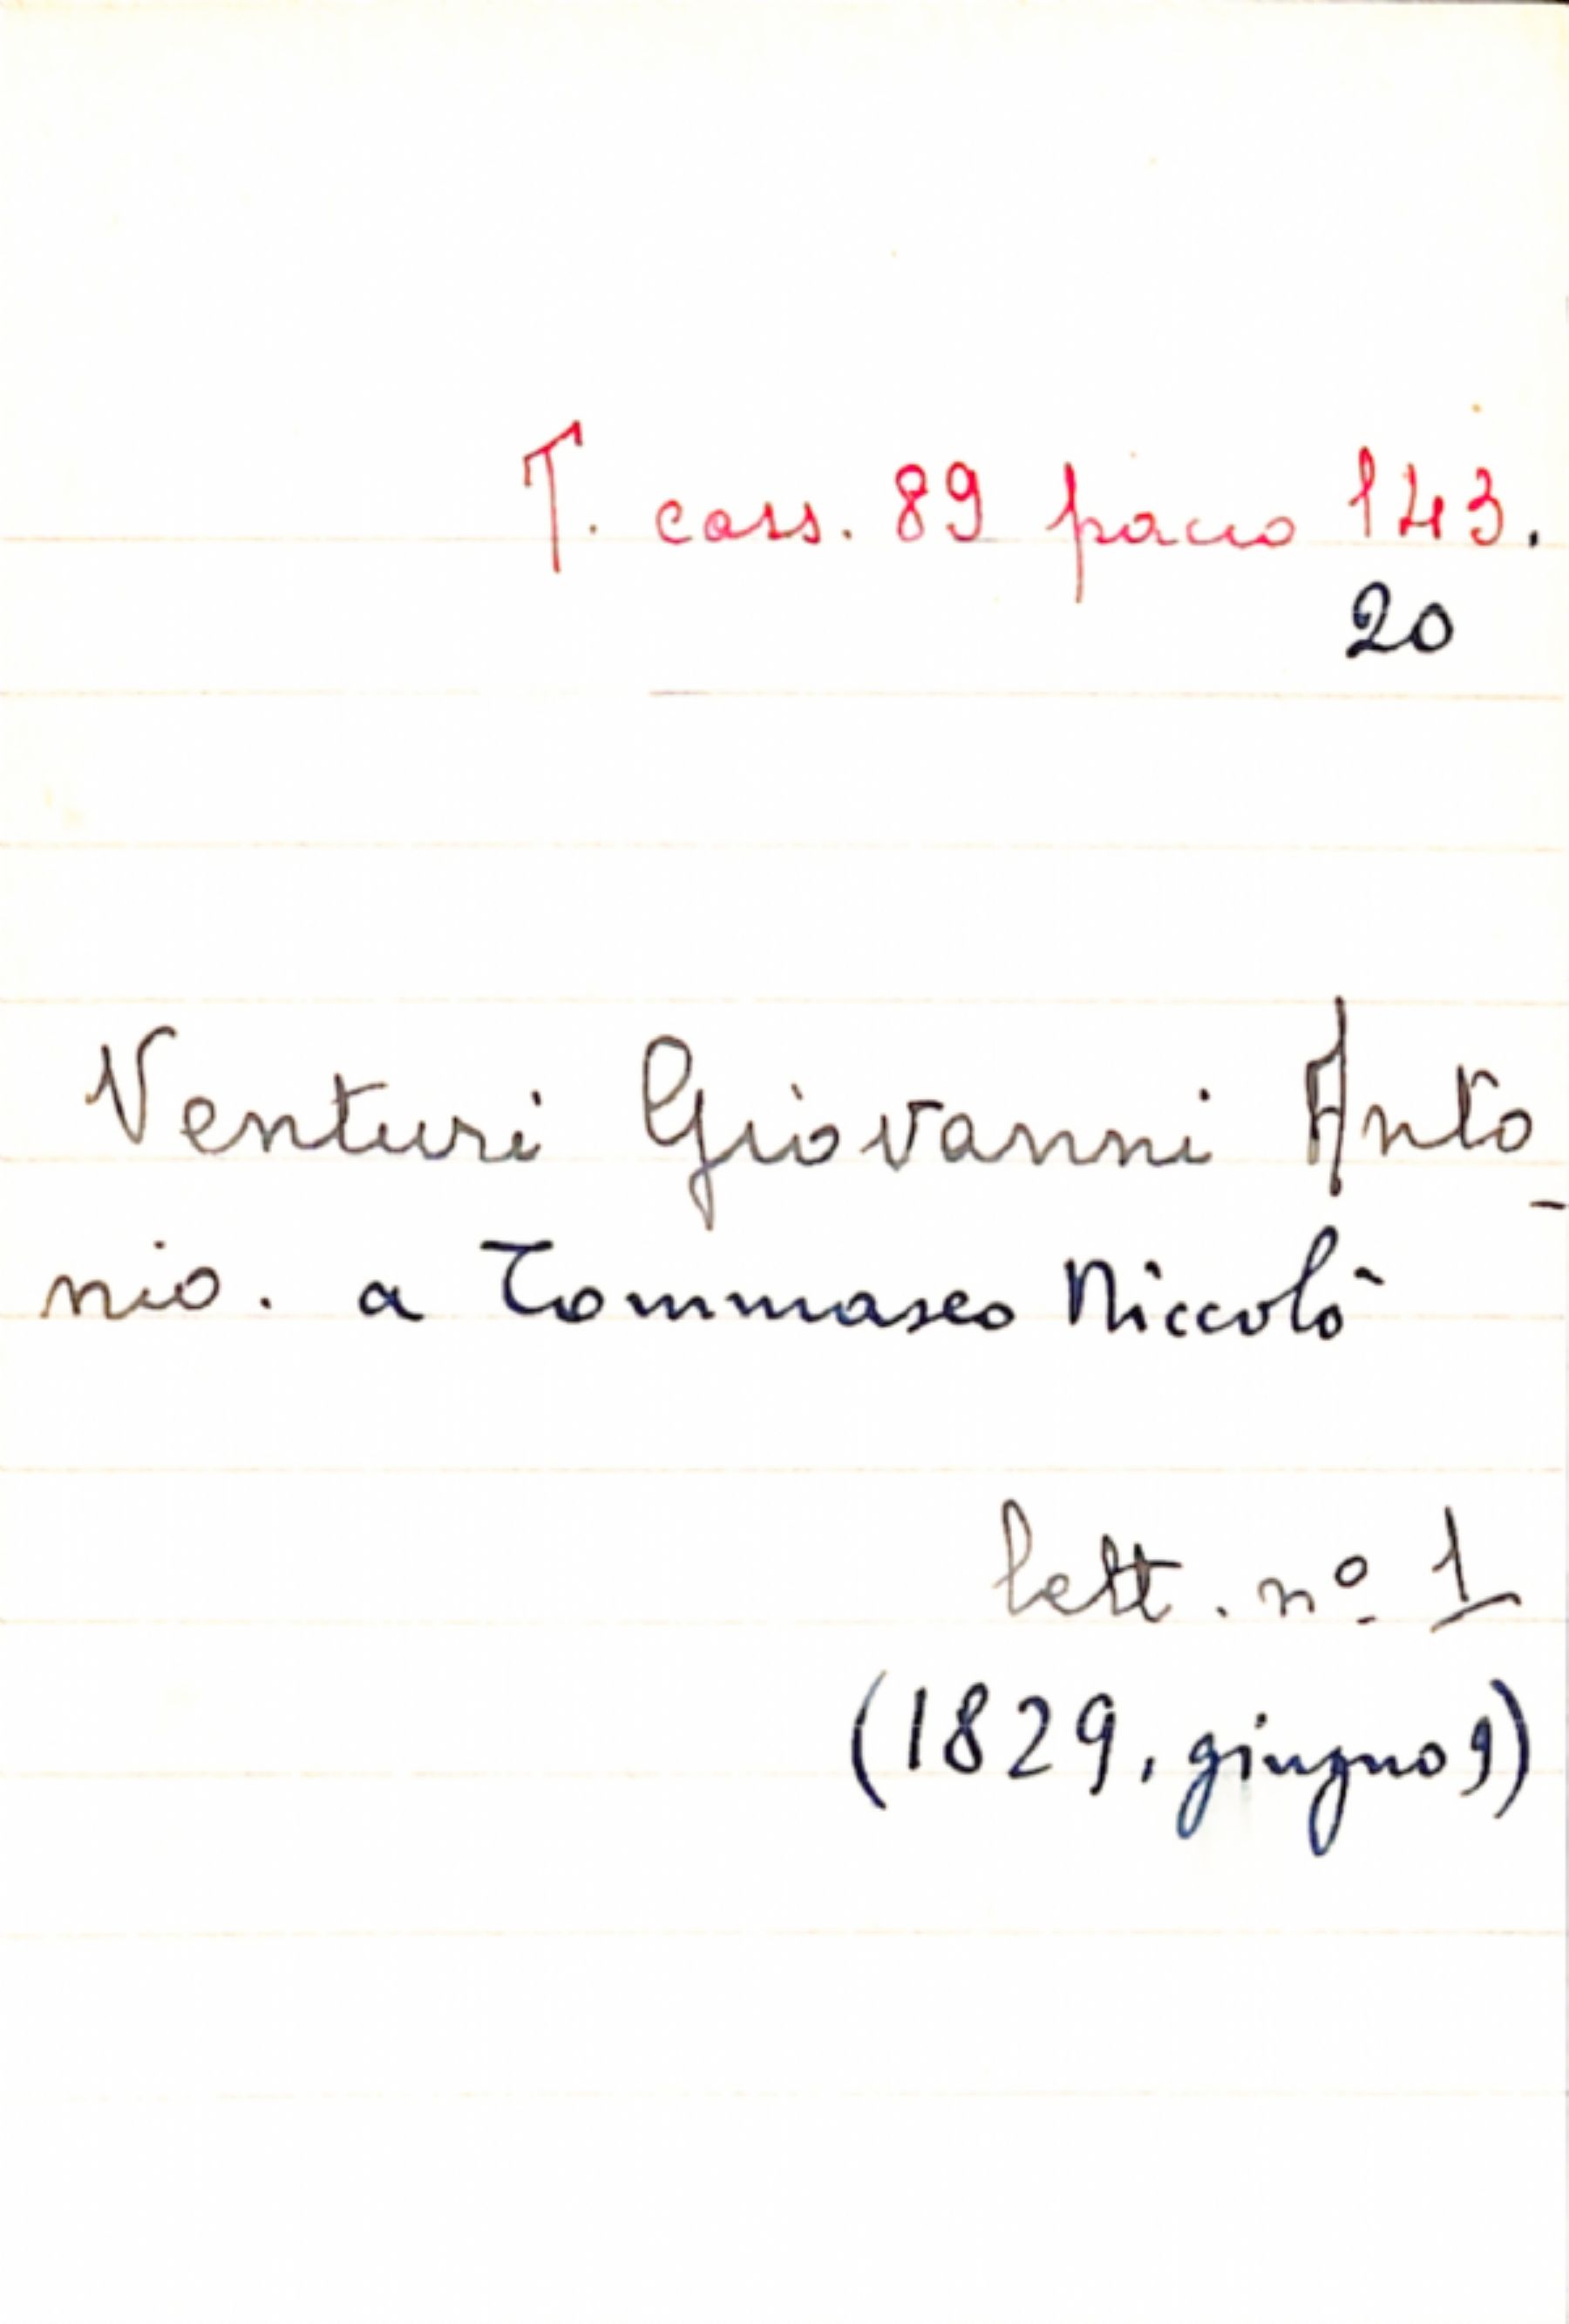 T. cass. 89 pacco 143.
20
Venturi Giovanni Anto_
nio. a Tommaseo Niccolò
lett. nº 1
(1829, giugno 9)